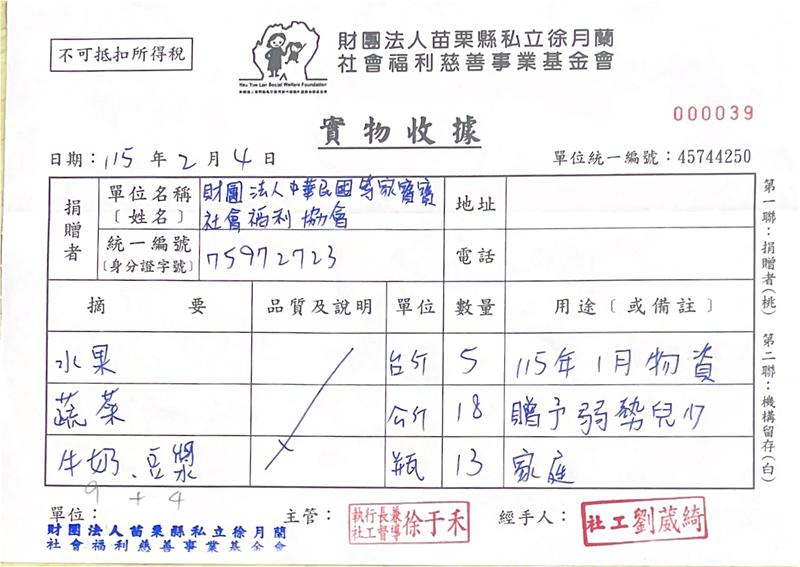 不可抵扣所得稅
Hsu Yue Lan Social Welfare Foundation
財團法人苗栗縣私立徐月蘭
社會福利慈善事業基金會
000039
實物收據
日期：115年2月4日
單位統一編號：45744250
捐贈者
單位名稱〔姓名〕
財團法人中華民國等家寶寶
社會福利協會
地址
統一編號〔身分證字號〕
75972723
電話
摘要 品質及說明 單位 數量 用途〔或備註〕
水果 台斤 5 115年1月物資
蔬菜 公斤 18 贈予弱勢兒少
牛奶、豆漿 瓶 13 家庭
9 + 4
第一聯：捐贈者(桃) 第二聯：機構留存(白)
單位：
財團法人苗栗縣私立徐月蘭
社會福利慈善事業基金會
主管：
執行長兼
社工督導
徐于禾
經手人：
社工劉葳綺